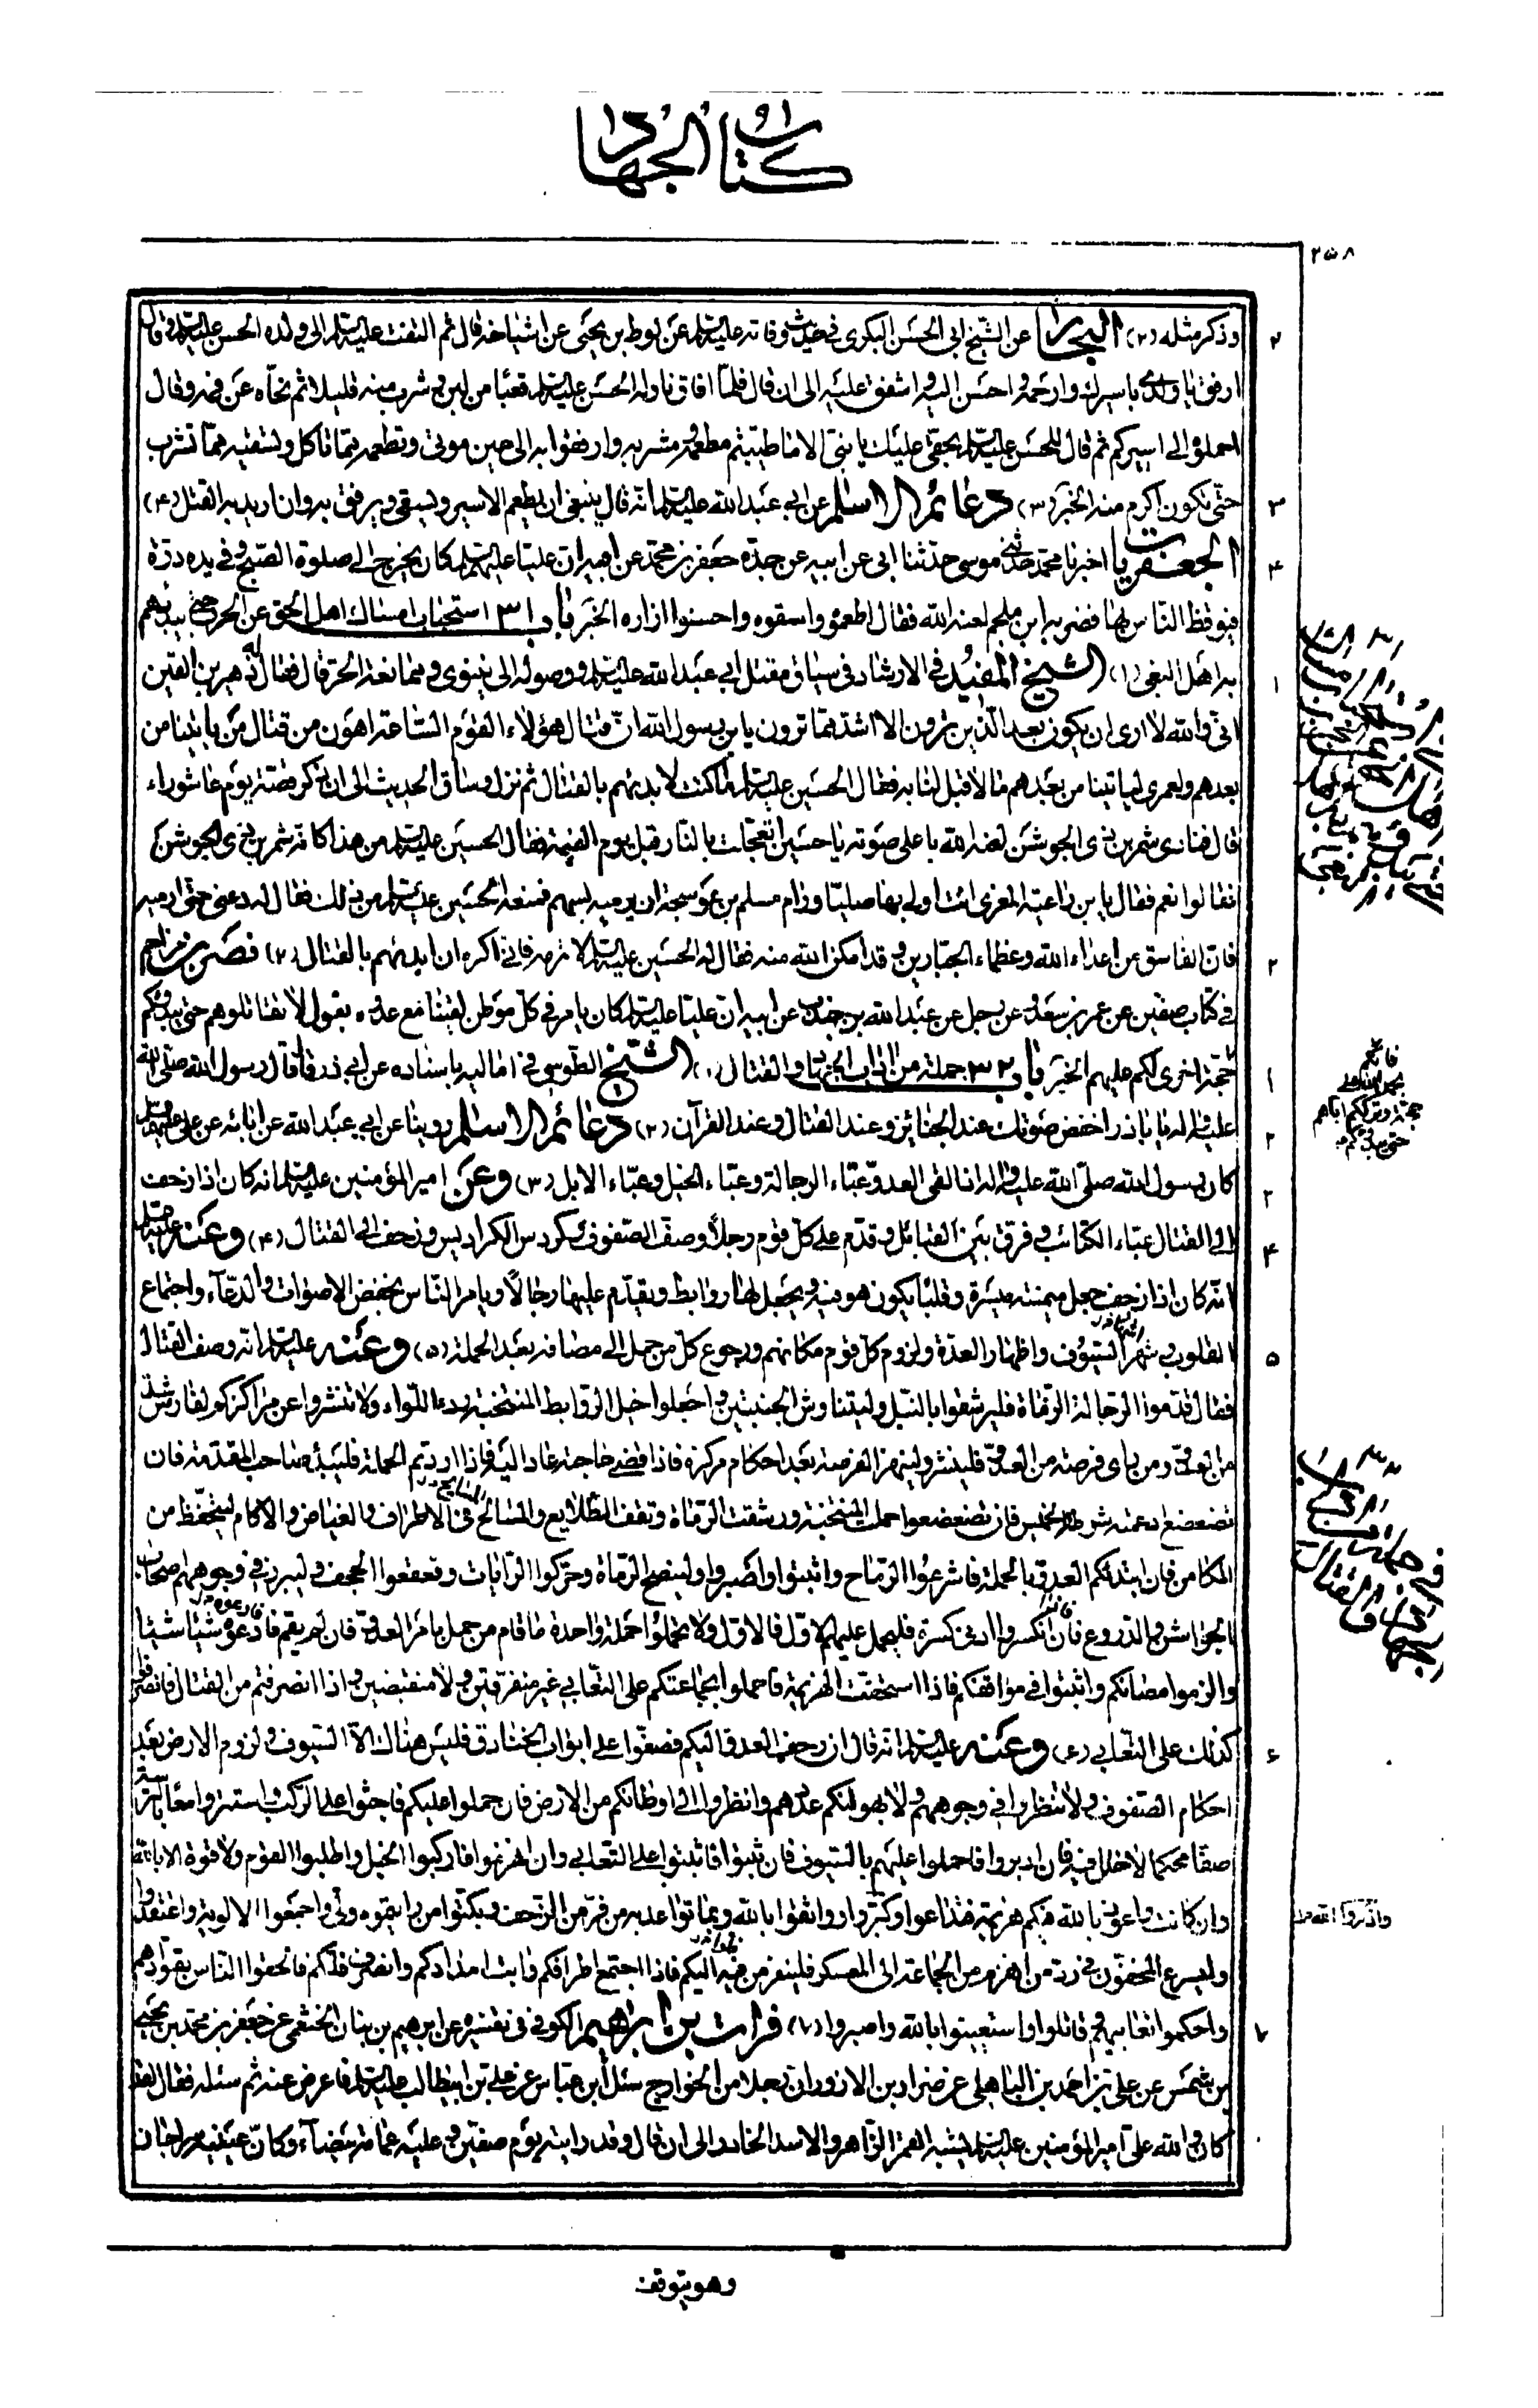 كتاب الجهاد
٢٥٨
وذكر مثله (٢) البحار عن الشيخ ابي الحسن البكري في حديث وفاته عليه السلام عن لوط بن يحيى عن اشياخه قال ثم التفت عليه السلام الى ولده الحسن عليه السلام وقال
ارفق يا ولدي باسيرك وارحمه واحسن اليه واشفق عليه الى ان قال فلما افاق ناوله الحسن عليه السلام قعبا من لبن وشرب منه قليلا ثم نحاه عن فمه وقال
احملوه الى اسيركم ثم قال للحسن عليه السلام بحقي عليك يا بني الا ما طيبتم مطعمه ومشربه وارفقوا به الى حين موتي وتطعمه مما تاكل وتسقيه مما تشرب
حتى تكون اكرم منه الخبر (٣) دعائم الاسلام عن ابي عبد الله عليه السلام انه قال ينبغي ان يطعم الاسير ويسقى ويرفق به وان اريد به القتل (٤)
الجعفريات اخبرنا محمد حدثني موسى حدثنا ابي عن ابيه عن جده جعفر بن محمد عن ابيه ان عليا عليه السلام كان يخرج الى صلوة الصبح وفي يده درة
فيوقظ الناس بها فضربه ابن ملجم لعنه الله فقال اطعموه واسقوه واحسنوا ازاره الخبر باب ٣١ استحباب امساك اهل الحق عن الحرب حتى يبدءهم
به اهل البغي (١) الشيخ المفيد في الارشاد في سياق مقتل ابي عبد الله عليه السلام ووصوله الى نينوى وممانعة الحر قال فقال له زهير بن القين
اني والله لا ارى ان يكون بعد الذين ترون الا اشد مما ترون يابن رسول الله ان قتال هؤلاء القوم الساعة اهون من قتال من ياتينا من
بعدهم ولعمري لياتينا من بعدهم ما لا قبل لنا به فقال الحسين عليه السلام ما كنت لابدئهم بالقتال ثم نزل وساق الحديث الى ان ذكر قصة يوم عاشوراء
قال فنادى شمر بن ذي الجوشن لعنه الله باعلى صوته يا حسين اتعجلت بالنار قبل يوم القيمة فقال الحسين عليه السلام من هذا كانه شمر بن ذي الجوشن
فقالوا نعم فقال يابن راعية المعزى انت اولى بها صليا ورام مسلم بن عوسجة ان يرميه بسهم فمنعه الحسين عليه السلام من ذلك فقال له دعني حتى ارميه
فان الفاسق من اعداء الله وعظماء الجبارين وقد امكن الله منه فقال له الحسين عليه السلام لا ترمه فاني اكره ان ابدئهم بالقتال (٢) نصر بن مزاحم
في كتاب صفين عن عمر بن سعد عن رجل عن عبد الله بن جندب عن ابيه ان عليا عليه السلام كان يامر في كل موطن لقينا مع عدوه يقول لا تقاتلوهم حتى يبدؤكم
حجة اخرى لكم عليهم الخبر باب ٣٢ جملة من اداب الجهاد والقتال (١) الشيخ الطوسي في اماليه باسناده عن ابي ذر قال قال رسول الله صلى الله
عليه واله يا باذر اخفض صوتك عند الجنائز وعند القتال وعند القرآن (٢) دعائم الاسلام روينا عن ابي عبد الله عن ابائه عن علي عليهم السلام
كان رسول الله صلى الله عليه واله اذا لقى العدو عباء الرجالة وعباء الخيل وعباء الابل (٣) وعن امير المؤمنين عليه السلام انه كان اذا زحف
الى القتال عباء الكتائب وفرق بين القبائل وقدم على كل قوم رجلا وصف الصفوف وكردس الكراديس وزحف الى القتال (٤) وعنه عليه السلام
انه كان اذا زحف جعل ميمنة وميسرة وقلبا يكون هو فيه ويجعل لها روابط ويقدم عليها رجالا ويامر الناس بخفض الاصوات والدعاء واجتماع
القلوب وشهر السيوف واظهار العدة ولزوم كل قوم مكانهم ورجوع كل من حمل الى مصافه بعد الحملة (٥) وعنه عليه السلام انه وصف القتال
فقال قدموا الرجالة الرماة فليرشقوا بالنبل وليتناوش الجنبتين واجعلوا خيل الروابط المنتخبة ردء اللواء ولا تنشزوا عن مراكزكم لفارس شذ
من العدو ومن راى فرصة من العدو فلينشز ولينتهز الفرصة بعد احكام مركزه فاذا قضى حاجته عاد اليه فاذا اردتم الحملة فليبدء صاحب المقدمة فان
تضعضع ادعمته شرطة الخميس فان تضعضعوا حملت المنتخبة ورشقت الرماة وتقف الطلايع والمسالح في الاطراف والغياض والاكام ليتحفظ من
المكامن فان ابتدئكم العدو بالحملة فاشرعوا الرماح واثبتوا واصبروا ولينضح الرماة وحركوا الرايات وقعقعوا الحجف وليبرز في وجوههم اصحاب
الجواشن والدروع فان انكسروا ادنى كسرة فليحمل عليهم الاول فالاول ولا تحملوا حملة واحدة ما قام من حمل بامر العدو فان لم يقم فادعوه شيئا شيئا
والزموا مصافكم واثبتوا في مواقفكم فاذا استحقت الهزيمة فاحملوا بجماعتكم على التعابي غير متفرقين ولا منقبضين واذا انصرفتم من القتال فانصرفوا
كذلك على التعابي (٦) وعنه عليه السلام انه قال ان زحف العدو اليكم فصفوا على ابواب الخنادق فليس هناك الا السيوف ولزوم الارض بعد
احكام الصفوف ولا تنظروا في وجوههم ولا يهولنكم عددهم وانظروا الى اوطانكم من الارض فان حملوا عليكم فاجثوا على الركب واستتروا معا بالترسة
صفا محكما لا خلل فيه فان ادبروا فاحملوا عليهم بالسيوف فان ثبتوا فاثبتوا على التعابي وان انهزموا فاركبوا الخيل واطلبوا القوم ولا قوة الا بالله
وان كانت واعوذ بالله فيكم هزيمة فتداعوا وكبروا وثقوا بالله وبما تواعد به من فر من الزحف وبكتوا من رايتموه ولى واجمعوا الالوية واعتقدوا
وليسرع المخفون في رد من انهزم من الجماعة الى المعسكر فلينفر من فيه اليكم فاذا اجتمع اطرافكم وابت امدادكم وانصرف فلكم فالحقوا الناس بقوادهم
واحكموا تعابيهم وقاتلوا واستعينوا بالله واصبروا (٧) فرات بن ابراهيم الكوفي في تفسيره عن ابرهيم بن بنان الخثعمي عن جعفر بن محمد بن يحيى
بن شمس عن علي بن احمد بن الباهلي عن ضرار بن الازور ان رجلا من الخوارج سئل ابن عباس عن علي بن ابيطالب عليه السلام فاعرض عنه ثم سئله فقال لقد
كان والله علي امير المؤمنين عليه السلام يشبه القمر الزاهر والاسد الخادر الى ان قال وقد رايته يوم صفين وعليه عمامة بيضاء وكان عينيه سراجان
فانكم
بحمد الله على
حجة وترككم اياهم
حتى يبدؤكم
واذكروا الله
وهو يتوقف